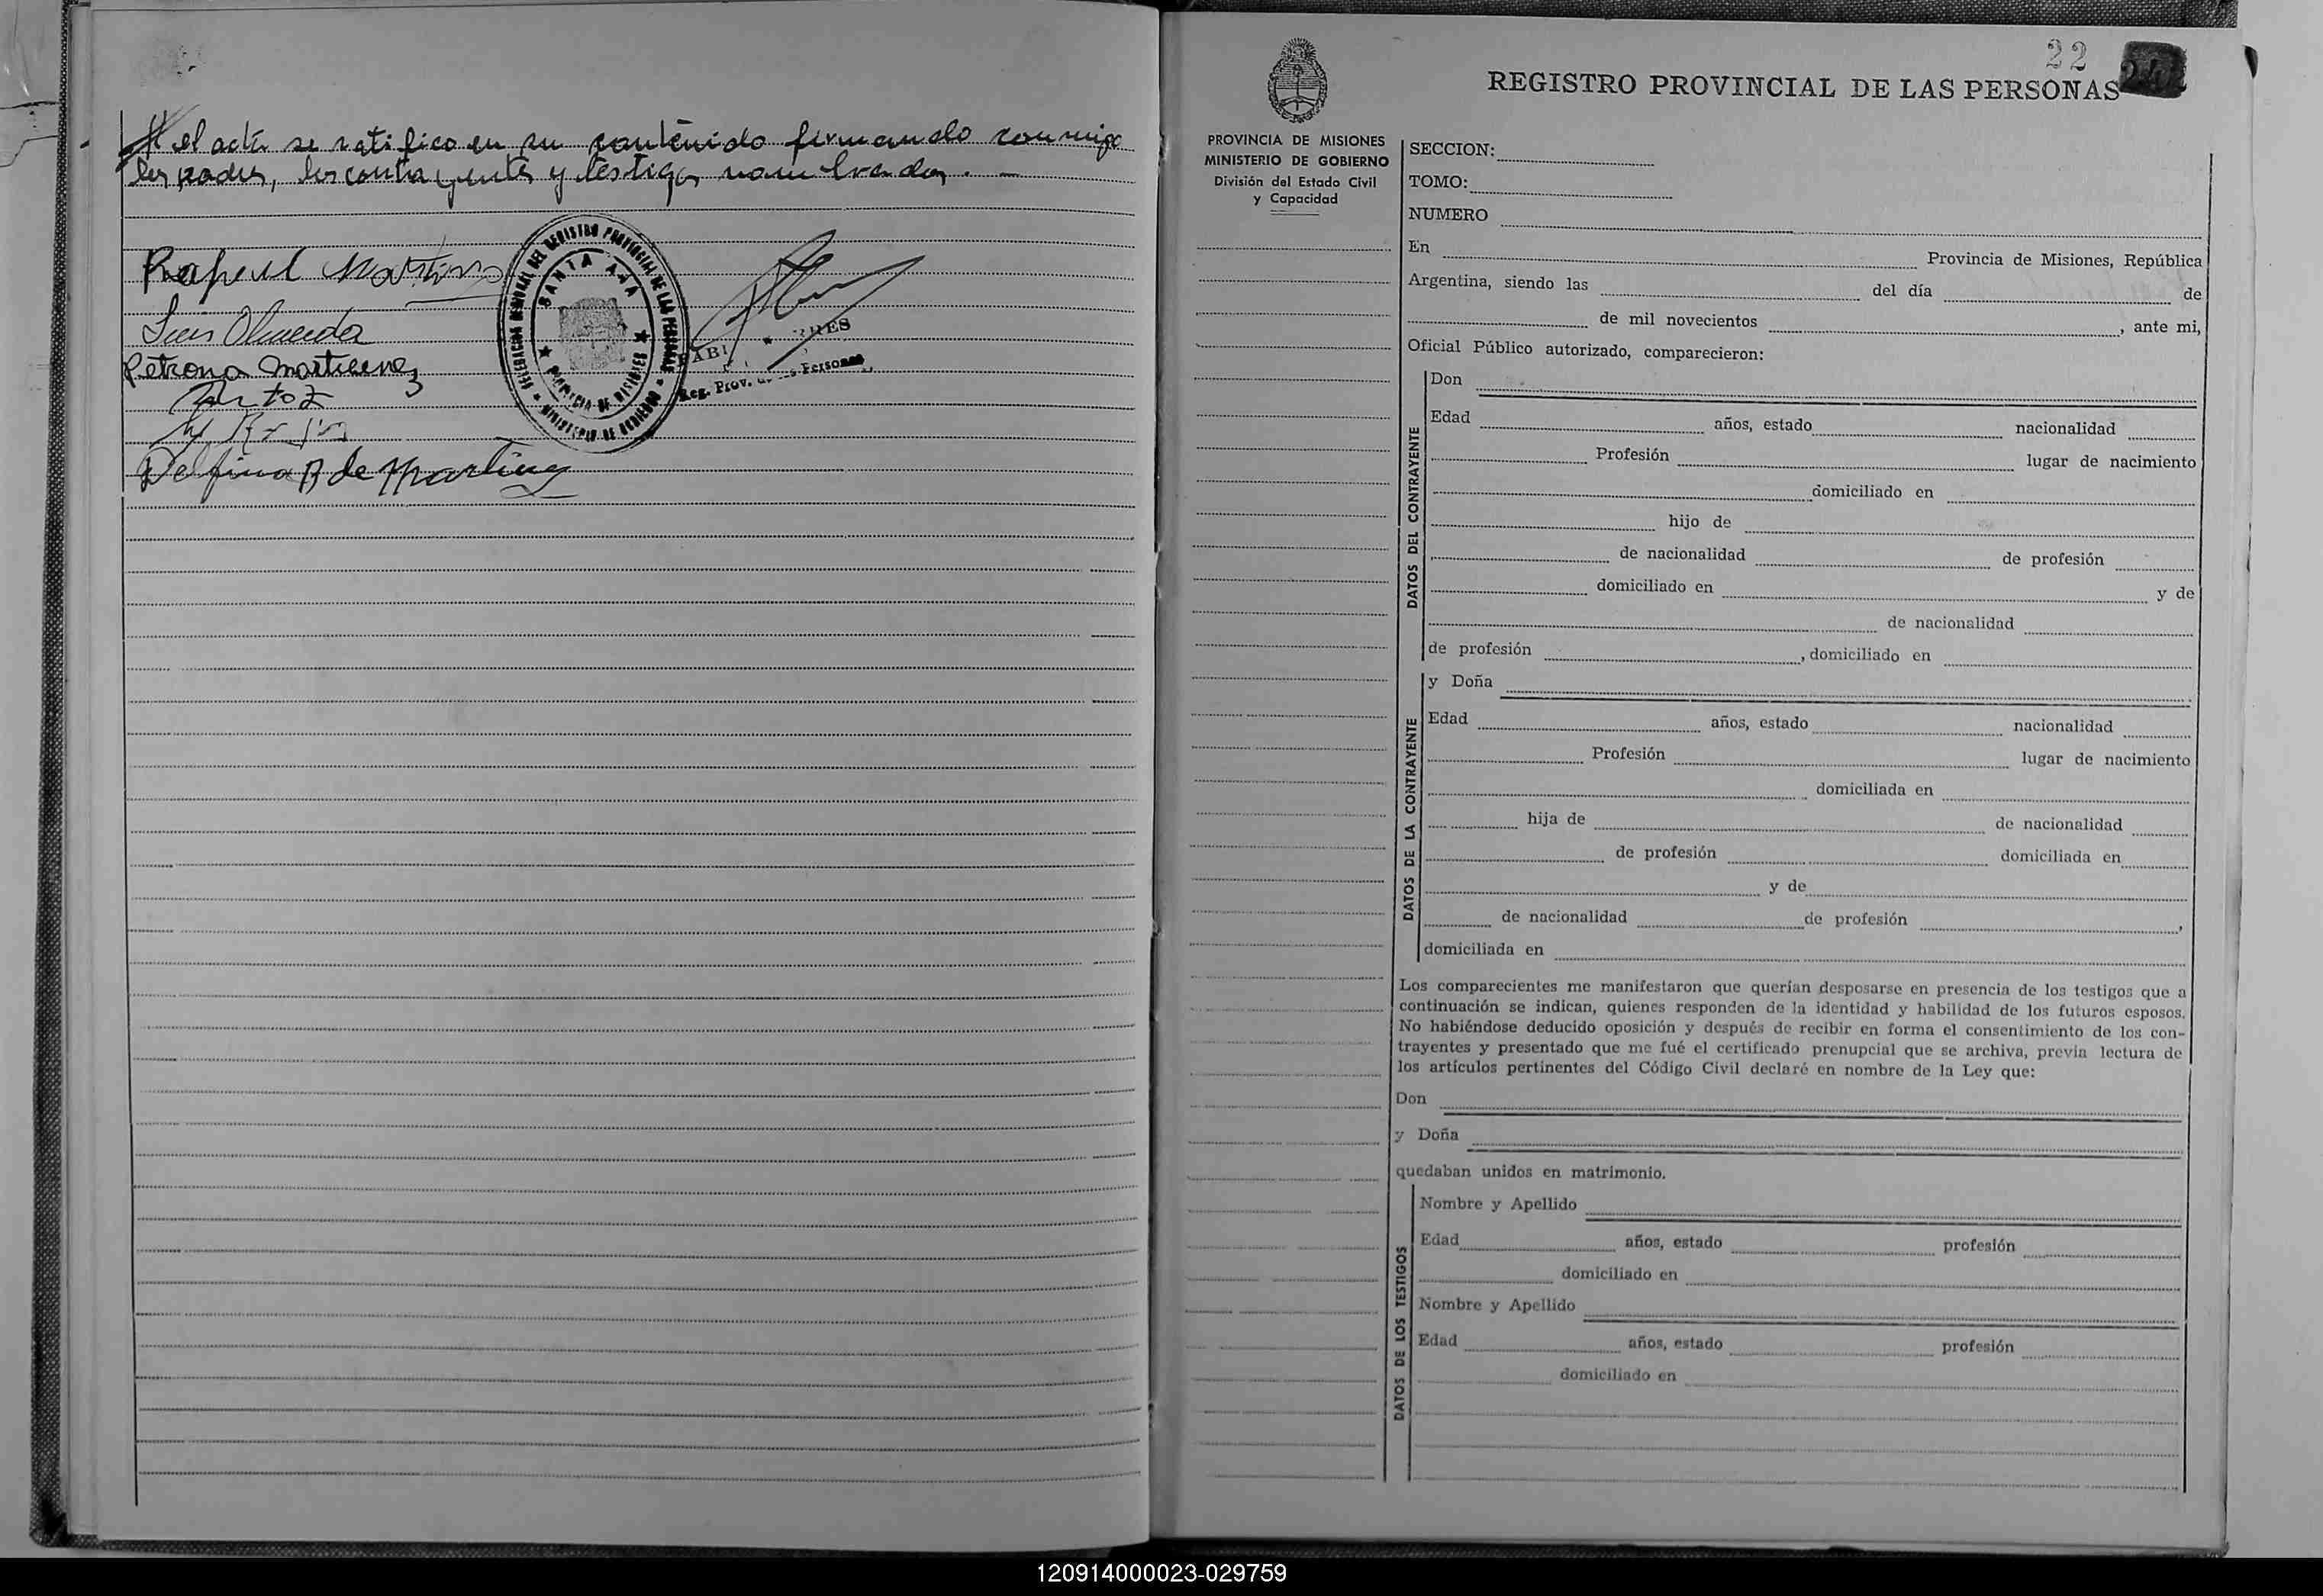 el acta se ratifico en su contenido firmando conmigo
los padres, los contrayentes y testigos nombrados. —
Rafael Martinez
Luis Olmedo
Petrona Martinez
Delfina R de Martinez
DELEGACION DEL REGISTRO PROVINCIAL DE LAS PERSONAS
SANTA ANA
PROVINCIA DE MISIONES
MINISTERIO DE GOBIERNO
Reg. Prov. Personas
22
REGISTRO PROVINCIAL DE LAS PERSONAS
PROVINCIA DE MISIONES
MINISTERIO DE GOBIERNO
División del Estado Civil
y Capacidad
SECCION:
TOMO:
NUMERO
En Provincia de Misiones, República
Argentina, siendo las del día de
de mil novecientos , ante mi,
Oficial Público autorizado, comparecieron:
DATOS DEL CONTRAYENTE
Don
Edad años, estado nacionalidad
Profesión lugar de nacimiento
domiciliado en
hijo de
de nacionalidad de profesión
domiciliado en y de
de nacionalidad
de profesión , domiciliado en
DATOS DE LA CONTRAYENTE
y Doña
Edad años, estado nacionalidad
Profesión lugar de nacimiento
domiciliada en
hija de de nacionalidad
de profesión domiciliada en
y de
de nacionalidad de profesión ,
domiciliada en
Los comparecientes me manifestaron que querían desposarse en presencia de los testigos que a
continuación se indican, quienes responden de la identidad y habilidad de los futuros esposos.
No habiéndose deducido oposición y después de recibir en forma el consentimiento de los con-
trayentes y presentado que me fué el certificado prenupcial que se archiva, previa lectura de
los artículos pertinentes del Código Civil declaré en nombre de la Ley que:
Don
y Doña
quedaban unidos en matrimonio.
DATOS DE LOS TESTIGOS
Nombre y Apellido
Edad años, estado profesión
domiciliado en
Nombre y Apellido
Edad años, estado profesión
domiciliado en
120914000023-029759